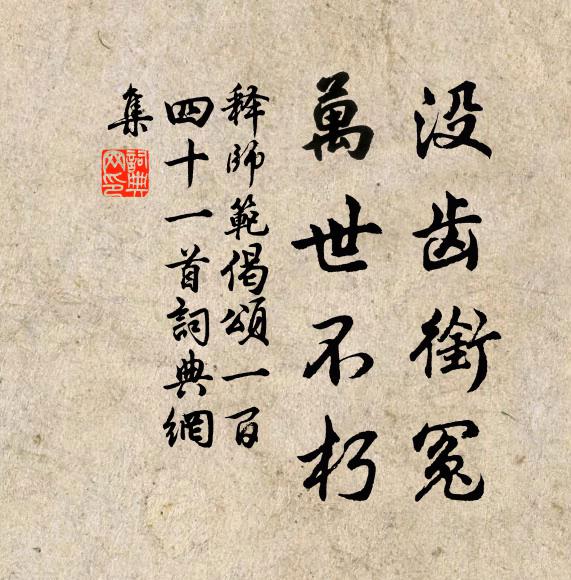 没齿銜冤
萬世不朽
释師範偈頌一百
四十一首詞典網
集
詞典网印